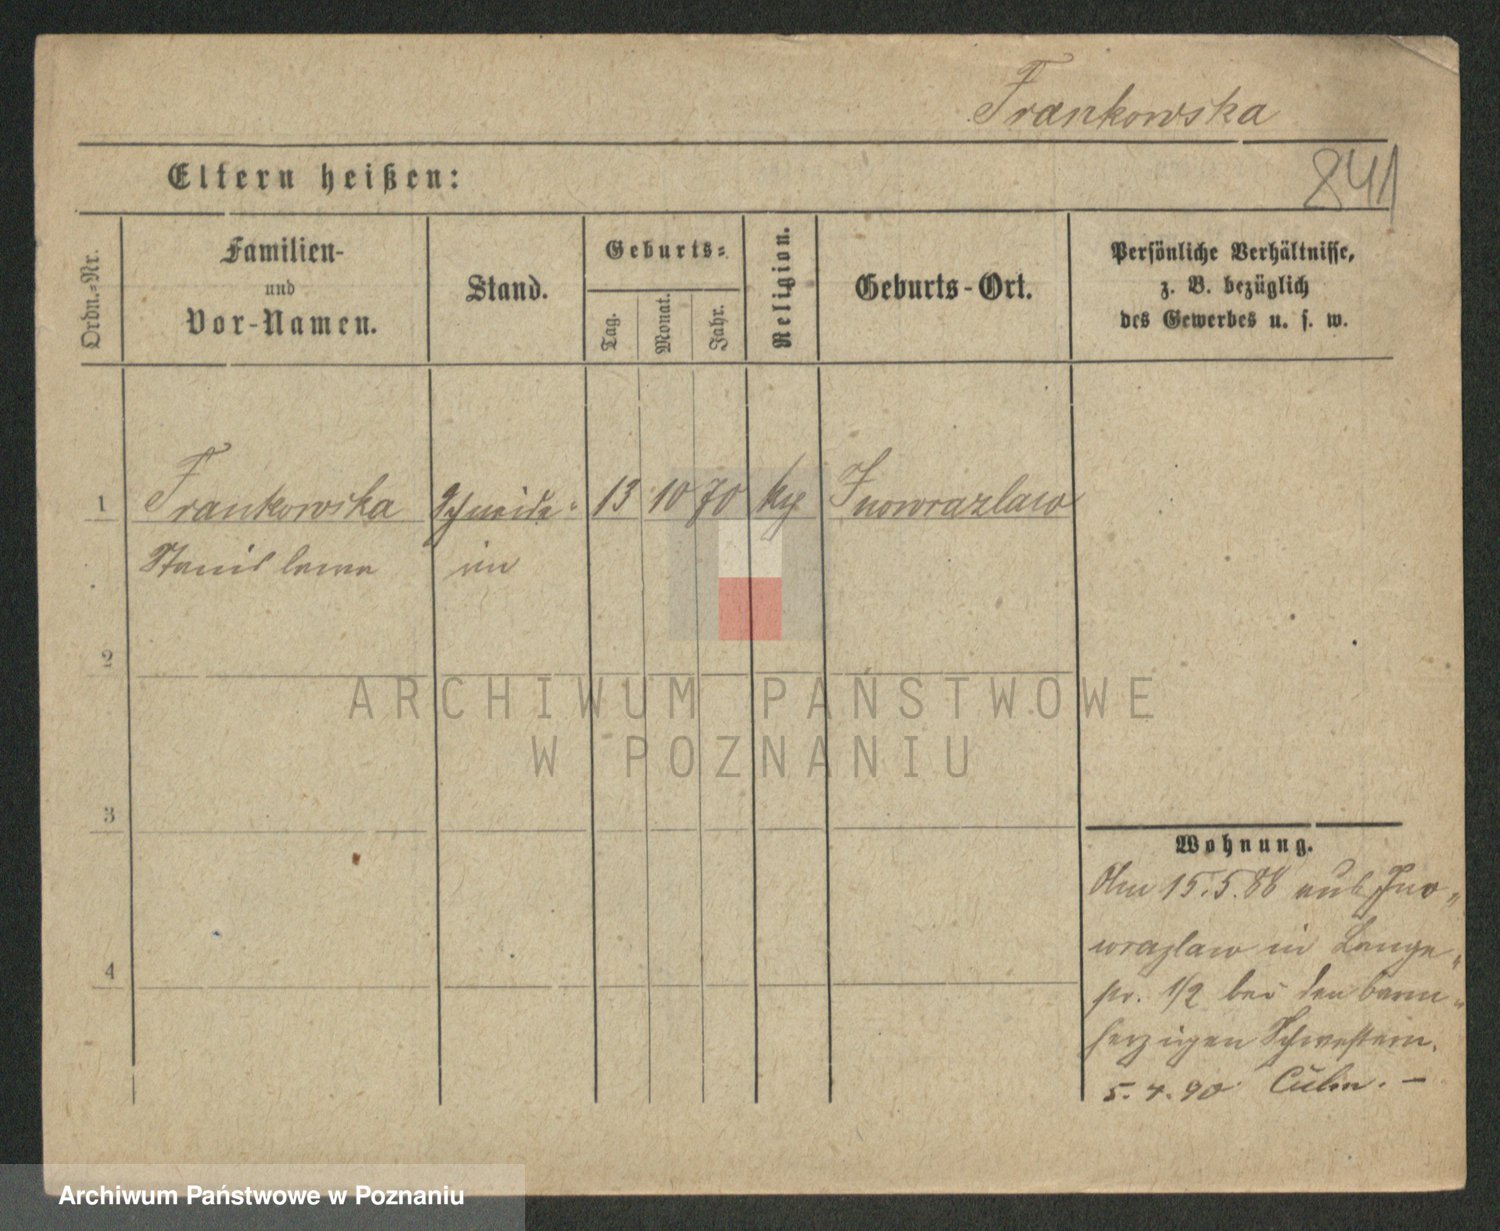 Frankowska
841
Eltern heißen:
Ordn.-Nr.
Familien-
und
Vor-Namen.
Stand.
Geburts-
Tag.
Monat.
Jahr.
Religion.
Geburts-Ort.
Persönliche Verhältnisse,
z. B. bezüglich
des Gewerbes u. s. w.
1 Frankowska Schneide- 13 10 70 Inowrazlaw
Stanislawa rin
2
ARCHIWUM PAŃSTWOWE
W POZNANIU
3
Wohnung.
15.5.88 aus Ino-
wrazlaw in Lange-
str. 1/2 bei den barm-
herzigen Schwestern.
5.4.90 Culm. -
4
Archiwum Państwowe w Poznaniu